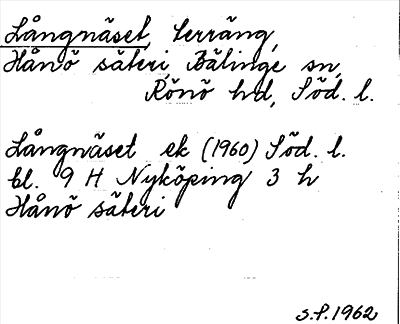 Långnäset, terräng,
Hånö säteri, Bälinge sn,
Rönö hd, Söd. l.
Långnäset ek (1960) Söd. l.
bl. 9 H Nyköping 3 h
Hånö säteri
S.P. 1962